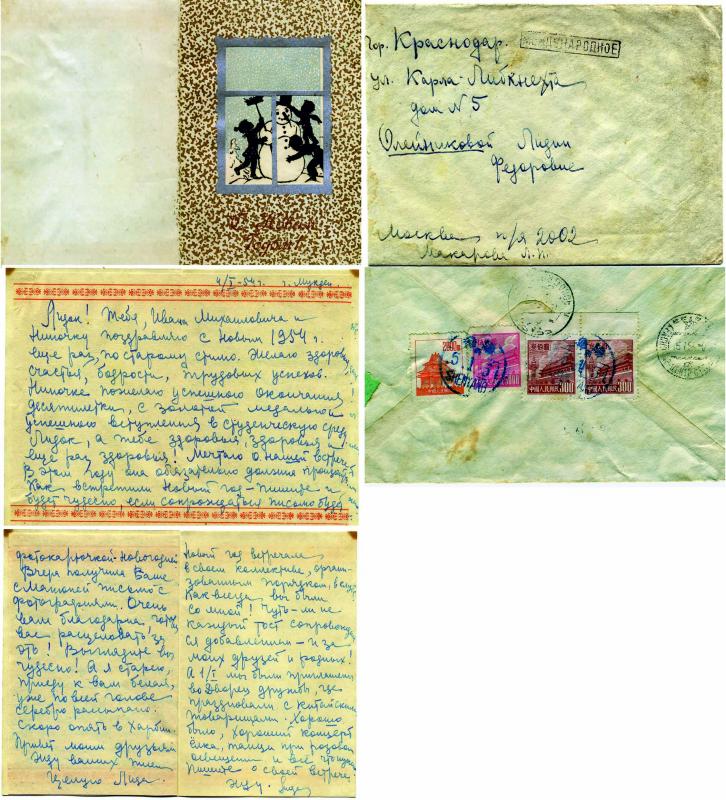 С Новым
годом!
гор. Краснодар.
МЕЖДУНАРОДНОЕ
ул. Карла-Либкнехта
дом №5
Олейниковой Лидии
Федоровне
Москва п/я 2002
Макарова Л.П.
4/I-54 г. г. Мукден.
Лидок! Тебя, Ивана Михайловича и
Ниночку поздравляю с Новым 1954 г.
еще раз, по старому стилю. Желаю здоровья,
счастья, бодрости, трудовых успехов.
Ниночке пожелаю успешного окончания
десятилетки, с золотой медалью и
успешного вступления в студенческую среду.
Лидок, а тебе здоровья, здоровья и
еще раз здоровья! Мечтаю о нашей встрече.
В этом году она обязательно должна
Как встретили Новый год - пишите и
будет чудесно, если сопрождаться письмо будет
300
300
300
фотокарточкой-новогодней
Вчера получила Ваше
с Манюней письмо с
фотографиями. Очень
вам благодарна, готова
вас расцеловать за
это! Выглядите вы
чудесно! А я старею,
приеду к вам белая,
уже по всей голове
серебро рассыпано.
Скоро опять в Харбин.
Привет моим друзьям
Жду ваших писем
Целую Лида.
Новый год встречала
в своем коллективе, органи-
зованным порядком,
Как всегда, вы были
со мной! Чуть-ли не
каждый тост сопровождал-
ся добавлением - и за
моих друзей и родных!
А 1/I мы были приглашены
во Дворец дружбы, где
праздновали с китайскими
товарищами. Хорошо
было, хороший концерт
ёлка, танцы при розовом
освещении и всё что
Пишите о своей встрече.
Жду. Лида